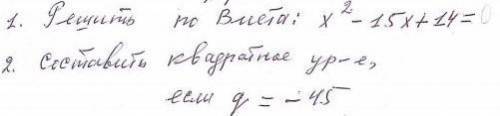 1. Решить по Виета: x² - 15x + 14 = 0
2. Составить квадратное ур-е,
если q = - 45